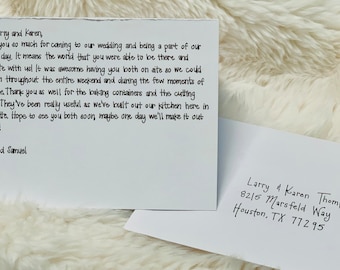 rry and Karen,
you so much for coming to our wedding and being a part of our
day. It means the world that you were able to be there and
te with us! It was awesome having you both on site so we could
n throughout the entire weekend and during the few moments of
e. Thank you as well for the baking containers and the cutting
They've been really useful as we've built out our kitchen here in
te. Hope to see you both soon, maybe one day we'll make it out
d Samuel
Larry & Karen Thom
8215 Marsfeld Way
Houston, TX 77295